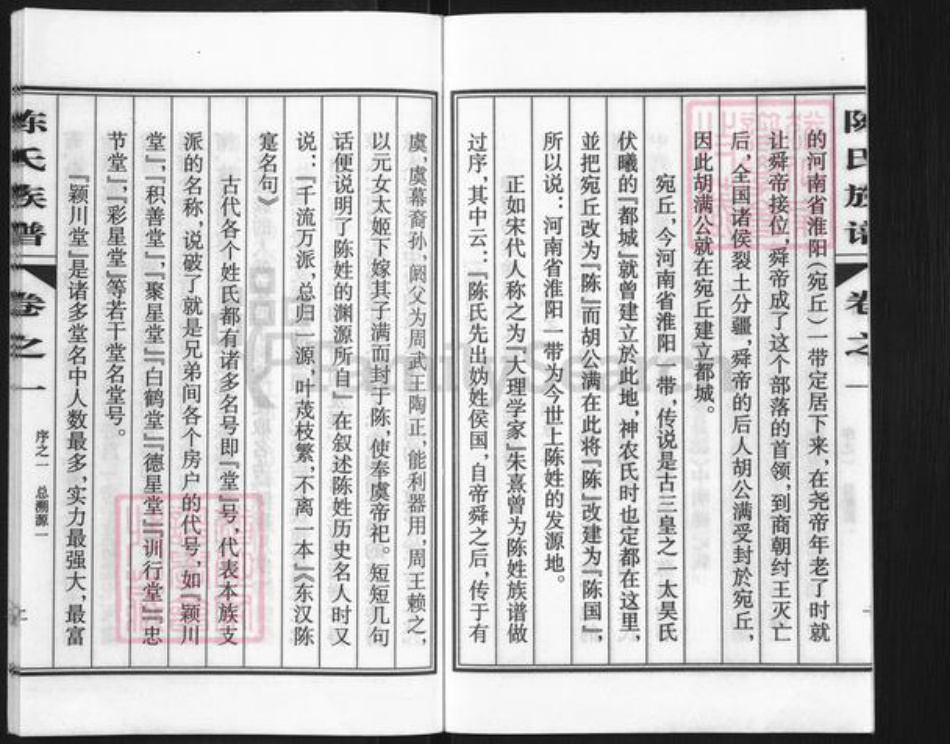 陈氏族谱 卷之一
的河南省淮阳(宛丘)一带定居下来,在尧帝年老了时就
让舜帝接位,舜帝成了这个部落的首领,到商朝纣王灭亡
后,全国诸侯裂土分疆,舜帝的后人胡公满受封於宛丘,
因此胡满公就在宛丘建立都城。
宛丘,今河南省淮阳一带,传说是古三皇之一太昊氏
伏曦的『都城』就曾建立於此地,神农氏时也定都在这里,
並把宛丘改为『陈』而胡公满在此将『陈』改建为『陈国』,
所以说:河南省淮阳一带为今世上陈姓的发源地。
正如宋代人称之为『大理学家』朱熹曾为陈姓族谱做
过序,其中云:『陈氏先出妫姓侯国,自帝舜之后,传于有
虞,虞幕裔孙,阏父为周武王陶正,能利器用,周王赖之,
以元女太姬下嫁其子满而封于陈,使奉虞帝祀。短短几句
话便说明了陈姓的渊源所自』在叙述陈姓历史名人时又
说:『千流万派,总归一源,叶茂枝繁,不离一本』《东汉陈
寔名句》
古代各个姓氏都有诸多名号即『堂』号,代表本族支
派的名称,说破了就是兄弟间各个房户的代号,如『颖川
堂』,『积善堂』,『聚星堂』『白鹤堂』『德星堂』『训行堂』『忠
节堂』,『彩星堂』等若干堂名堂号。
『颖川堂』是诸多堂名中人数最多,实力最强大,最富
陈氏族谱 卷之一 序之一 总溯源一
FamilySearch